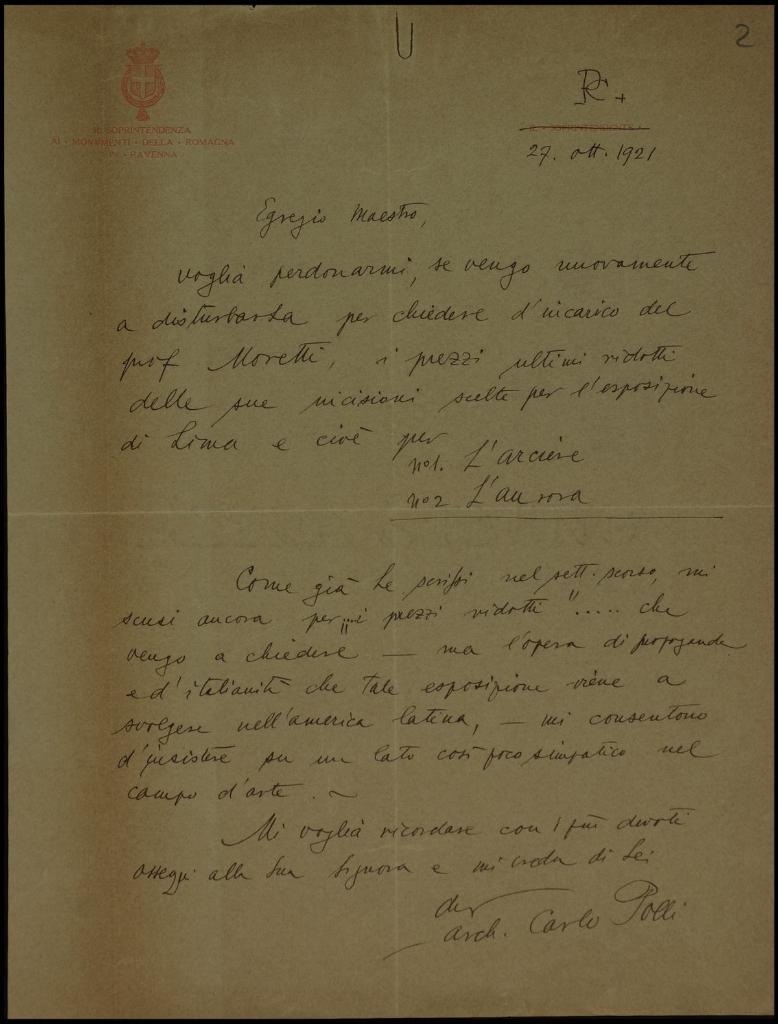 2
R. SOPRINTENDENZA
AI · MONUMENTI · DELLA · ROMAGNA
IN · RAVENNA
27. ott. 1921
Egregio Maestro,
voglia perdonarmi, se vengo nuovamente
a disturbarla per chiedere d'incarico del
prof Moretti, i prezzi ultimi ridotti
delle sue incisioni scelte per l'esposizione
di Lima e cioè per
n°1. L'arciere
n°2 L'aurora
Come già Le scrissi nel sett. scorso, mi
scusi ancora per "i prezzi ridotti" ..... che
vengo a chiedere — ma l'opera di propaganda
e d'italianità che tale esposizione viene a
svolgere nell'america latina, — mi consentono
d'insistere su un lato così poco simpatico nel
campo d'arte. ~
Mi voglia ricordare con i più devoti
ossequi alla Sua Signora e mi creda di Lei
dev
arch. Carlo Polli